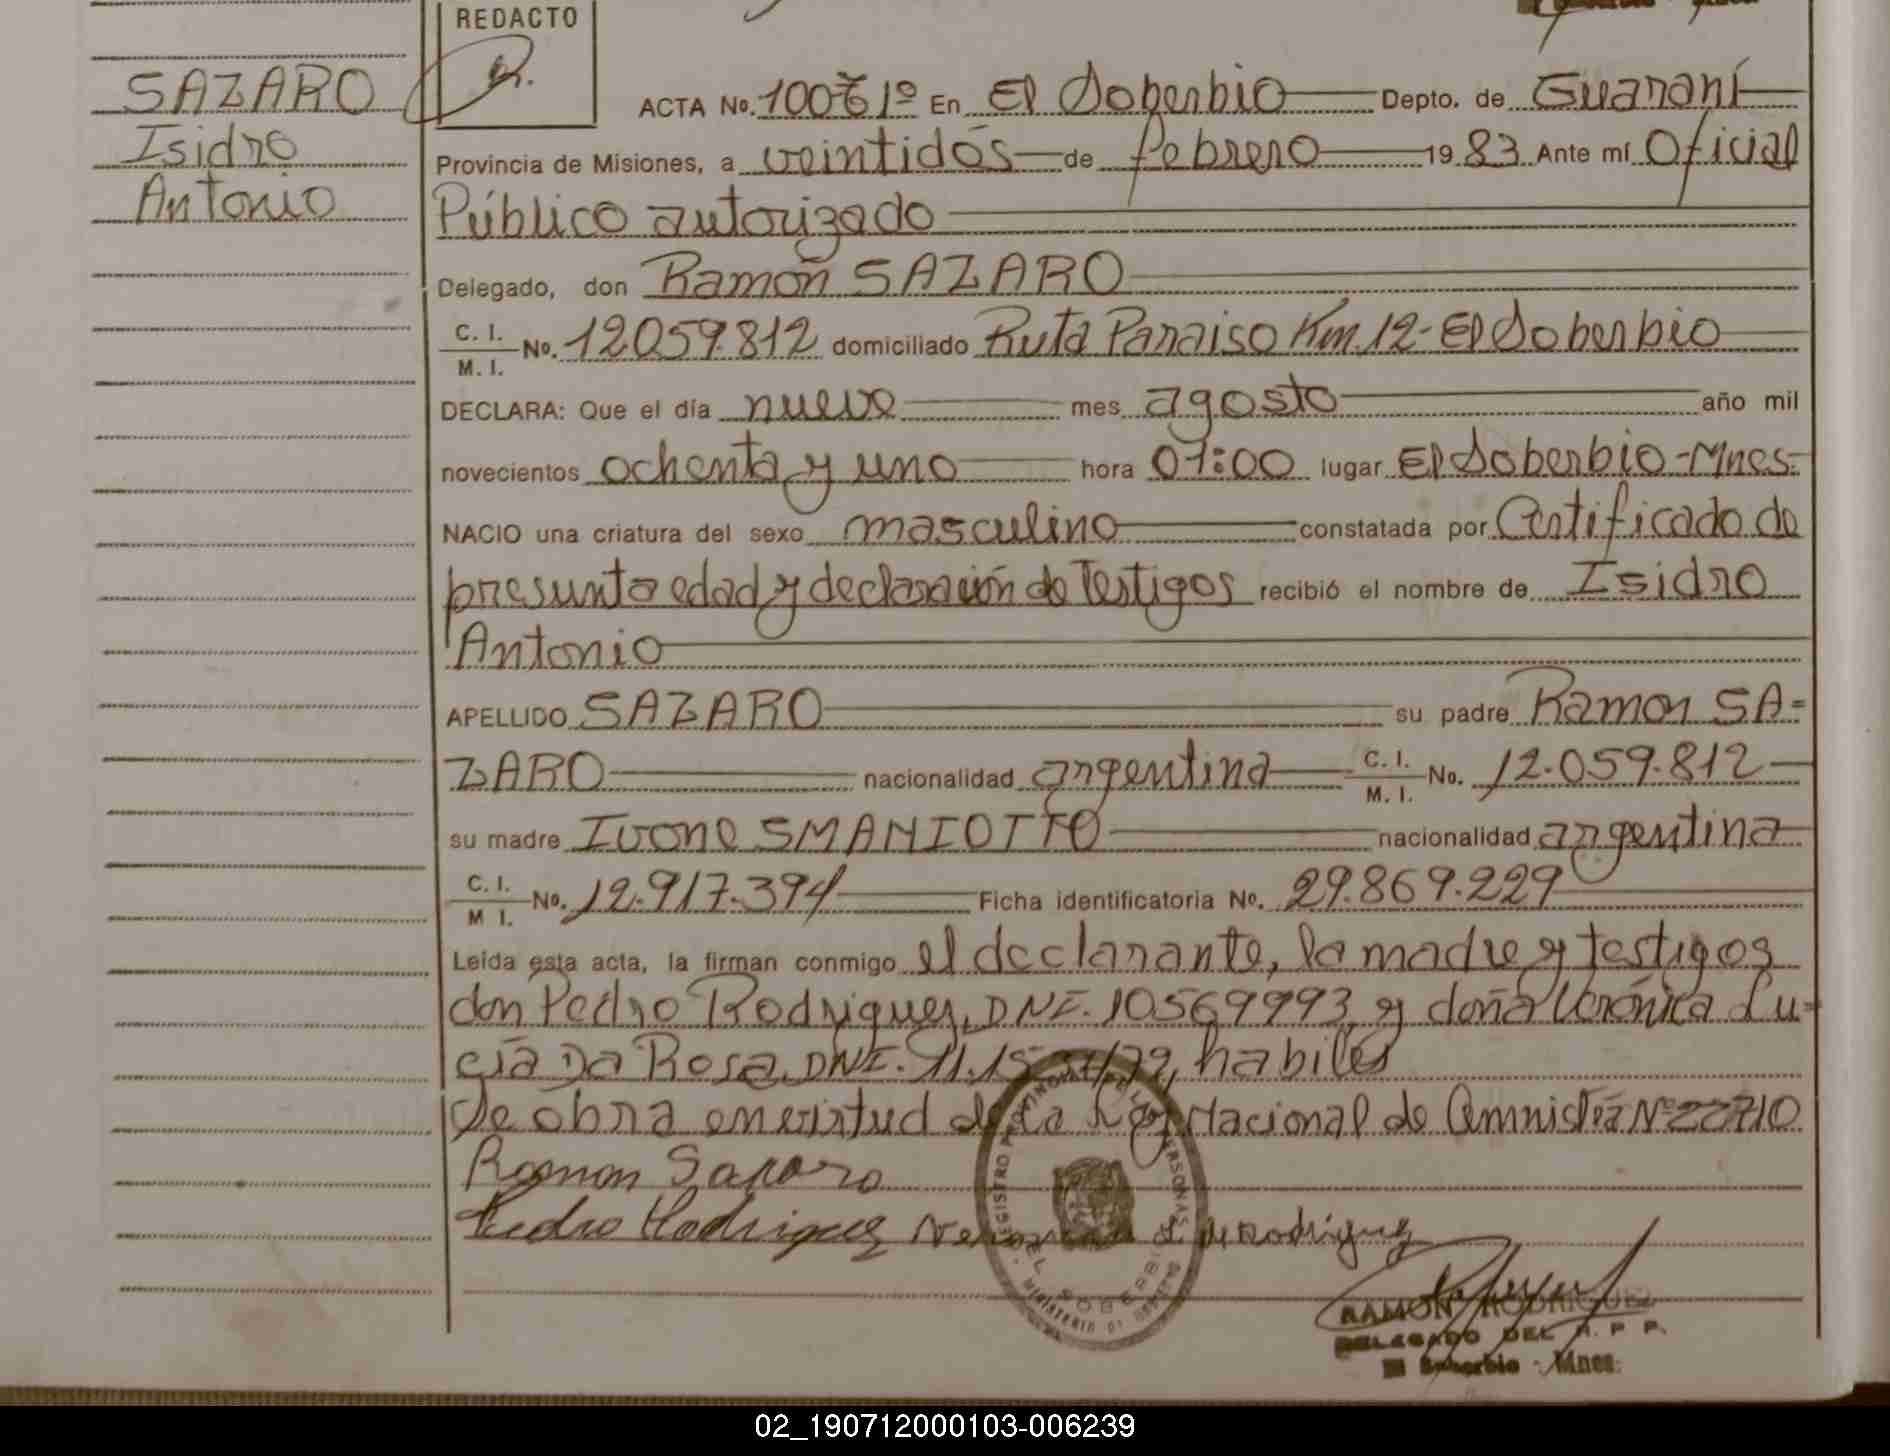 REDACTO
SAZARO
Isidro
Antonio
ACTA No. 100 Tº 1º En El Soberbio Depto. de Guaraní
Provincia de Misiones, a veintidós de febrero 19 83 Ante mí Oficial
Público autorizado
Delegado, don Ramón SAZARO
C. I. / M. I. No. 12059.812 domiciliado Ruta Paraiso Km. 12 - El Soberbio
DECLARA: Que el día nueve mes agosto año mil
novecientos ochenta y uno hora 01:00 lugar El Soberbio - Mnes.
NACIO una criatura del sexo masculino constatada por Certificado de
presunta edad y declaración de Testigos recibió el nombre de Isidro
Antonio
APELLIDO SAZARO su padre Ramon SA=
ZARO nacionalidad argentina C. I. / M. I. No. 12.059.812
su madre Ivone SMANIOTTO nacionalidad argentina
C. I. / M I. No. 12.917.394 Ficha identificatoria No. 29.869.229
Leída esta acta, la firman conmigo el declarante, la madre y testigos
don Pedro Rodriguez, DNI. 10569993 y doña Verónica Lu=
cía Da Rosa, DNI. 11.15 habiles
Se obra en virtud de la Ley Nacional de Amnistía Nº 22710
Ramon Sazaro
Pedro Rodriguez L de Rodriguez
REGISTRO PROVINCIAL DE LAS PERSONAS
EL SOBERBIO
MINISTERIO DE
RAMON RODRIGUEZ
DELEGADO DEL R. P. P.
El Soberbio - Mnes.
02_190712000103-006239